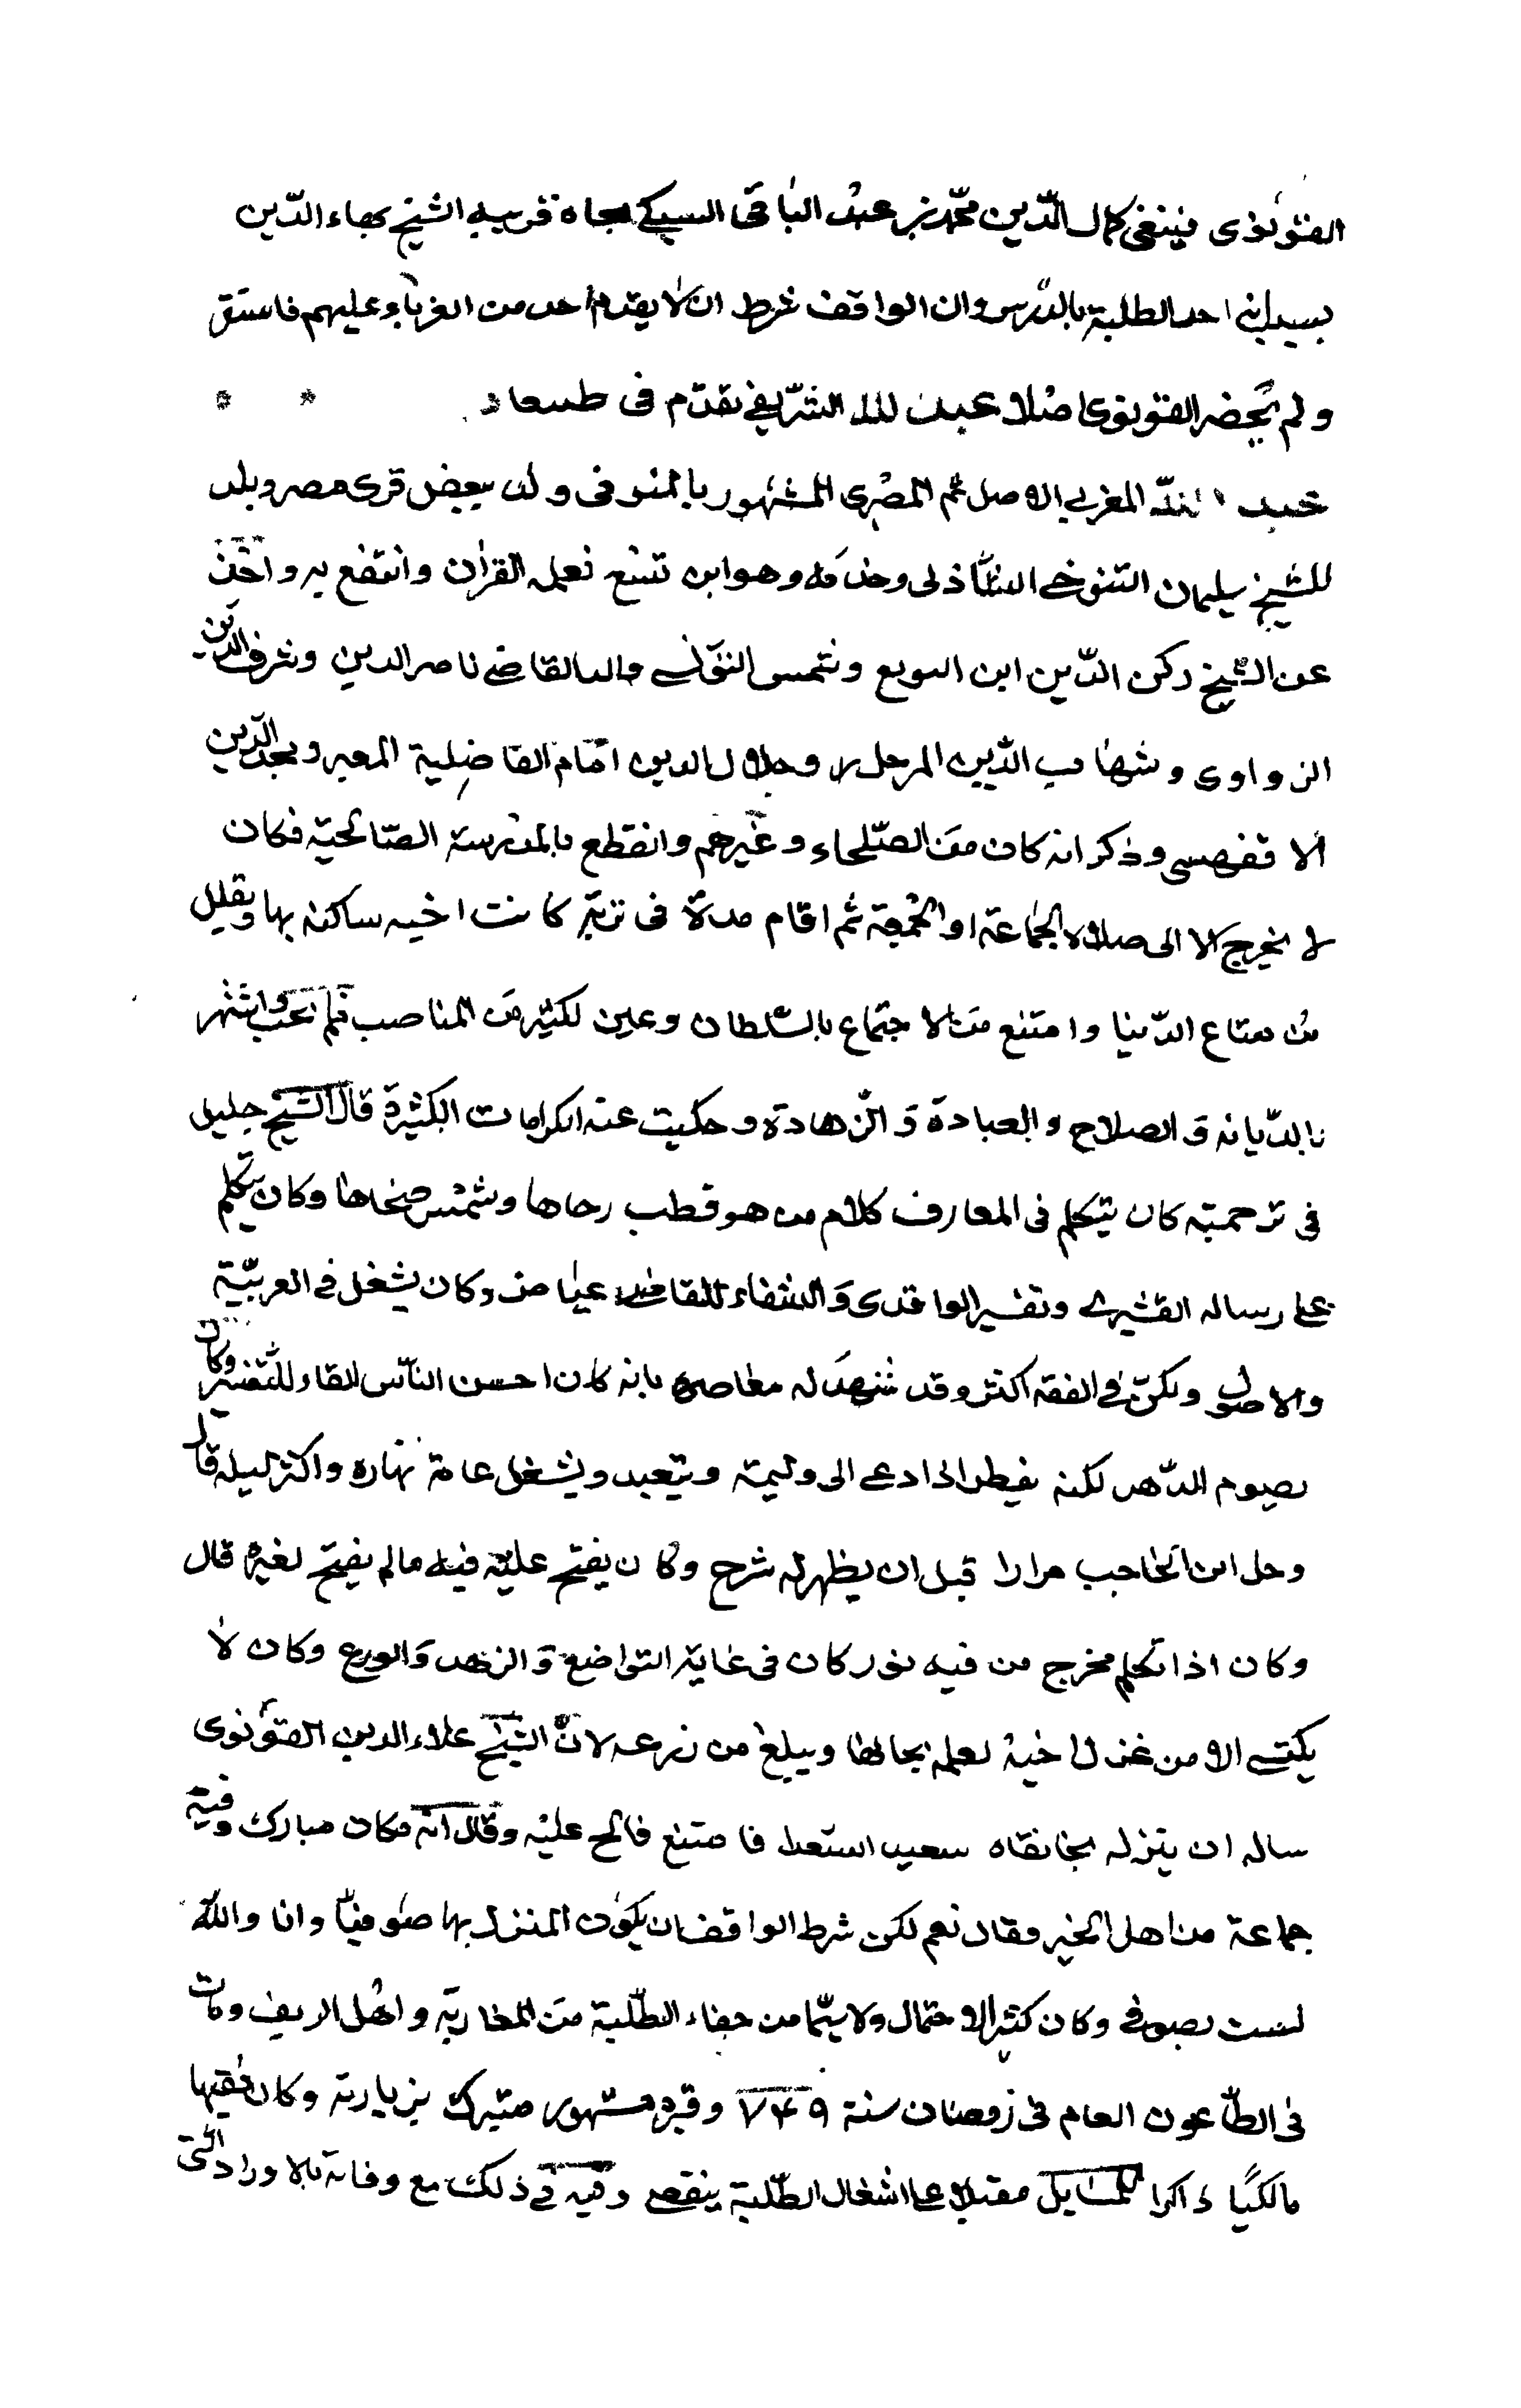 القونوى فينبغى كمال الدّين محمّد بن عبد الباقى السبكى بجاه قريبه الشيخ بهاء الدّين
احد الطلبة بالدّرس وان الواقف شرط ان لا يقدم احد من الغرباء عليهم
ولم يحضر القونوى اصلا عبد الله الشريفى تقدّم فى
عبد الله المغربى الاصل ثم المصرى المشهور بالمنوفى ولد ببعض قرى مصر وبلد
للشيخ سليمان التنوخى الشاذلى وخدمه وهو ابن تسع تعلم القران وانتفع به واخذ
عن الشيخ ركن الدّين ابن القوبع وشمس التونسى والد القاضى ناصر الدين وشرف الدين
الزواوى وشهاب الدّين المرحل وجلال الدين امام الفاضلية ومجد الدّين
الاقفهسى وذكر انه كان من الصّلحاء وغيرهم وانقطع بالمدرسة الصّالحيّة فكان
لا يخرج الا الى صلاة الجماعة او الجمعة ثم اقام مدة فى تربة كانت اخيه ساكنة بها ويقلل
من متاع الدّنيا وامتنع من الاجتماع بالسّلطان وعين لكثير من المناصب فلم يجب واشتهر
بالدّيانه و الصلاح و العبادة و الزّهادة وحكيت عنه الكرامات الكثيرة قال الشيخ خليل
فى ترجمته كان يتكلم فى المعارف كلام من هو قطب رحاها وشمس ضحاها وكان يتكلم
على رساله القشيرى وتفسير الواحدى و الشفاء للقاضى عياض وكان يشغل فى العربيّة
والاصول ولكن فى الفقه اكثر وقد شهد له معاصروه بانه كان احسن الناس القاء للتفسير وكان
يصوم الدّهر لكنه يفطر اذا دعى الى وليمة ويتعبد ويشغل عامة نهاره واكثر ليله قال
وحل ابن الحاجب مرارا قبل ان يظهر له شرح وكان يفتح عليه فيه ما لم يفتح لغيره قال
وكان اذا تكلم يخرج من فيه نور كان فى غاية التواضع و الزهد و الورع وكان لا
يكتسى الا من غزل اخيه لعلمه بحالها ويبلغ من زرعه لانّ الشيخ علاء الدين القونوى
ساله ان ينزله بخانقاه سعيد السعدا فامتنع فالح عليه وقال انه مكان مبارك وفيه
جماعة من اهل الخير فقال نعم لكن شرط الواقف ان يكون المنزل بها صوفيّا وانا والله
لست بصوفى وكان كثير الاحتمال ولا سيّما من جفاء الطّلبة من المغاربة واهل الريف ومات
فى الطّاعون العام فى رمضان سنة ٧٤٩ وقبره مشهور متبرك بزيارته وكان فقيها
مالكيًا ذاكرا للمسايل مقبلا على اشغال الطّلبة فى ذلك مع وفائه بالاوراد التى